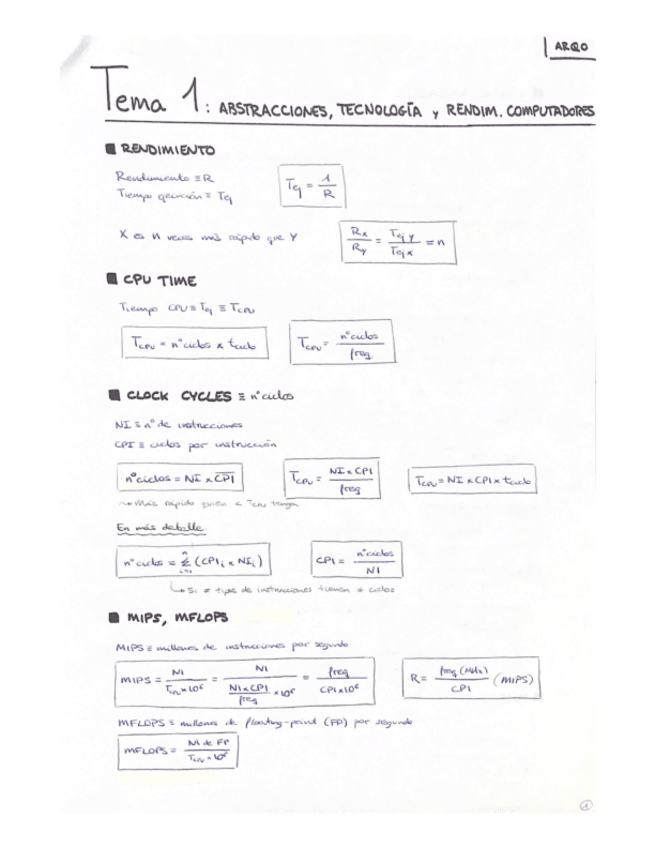 ARQO
Tema 1: ABSTRACCIONES, TECNOLOGÍA y RENDIM. COMPUTADORES
■ RENDIMIENTO
Rendimiento ≡ R
Tiempo ejecución ≡ Tej
Tej = 1/R
X es n veces más rápido que Y
Rx/Ry = Tej y/Tej x = n
■ CPU TIME
Tiempo CPU ≡ Tej ≡ TCPU
TCPU = nº ciclos x tciclo
TCPU = nº ciclos/freq
■ CLOCK CYCLES ≡ nº ciclos
NI ≡ nº de instrucciones
CPI ≡ ciclos por instrucción
nº ciclos = NI x CPI
TCPU = NI x CPI/freq
TCPU = NI x CPI x tciclo
→ Más rápido quien < TCPU tenga
En más detalle
nº ciclos = Σ i=1 n (CPIi x NIi)
CPI = nº ciclos/NI
↳ Si ≠ tipos de instrucciones tienen ≠ ciclos
■ MIPS, MFLOPS
MIPS ≡ millones de instrucciones por segundo
MIPS = NI/TCPU x 10⁶ = NI/(NI x CPI/freq x 10⁶) = freq/CPI x 10⁶
R = freq (MHz)/CPI (MIPS)
MFLOPS ≡ millones de floating-point (FP) por segundo
MFLOPS = NI de FP/TCPU x 10⁶
1